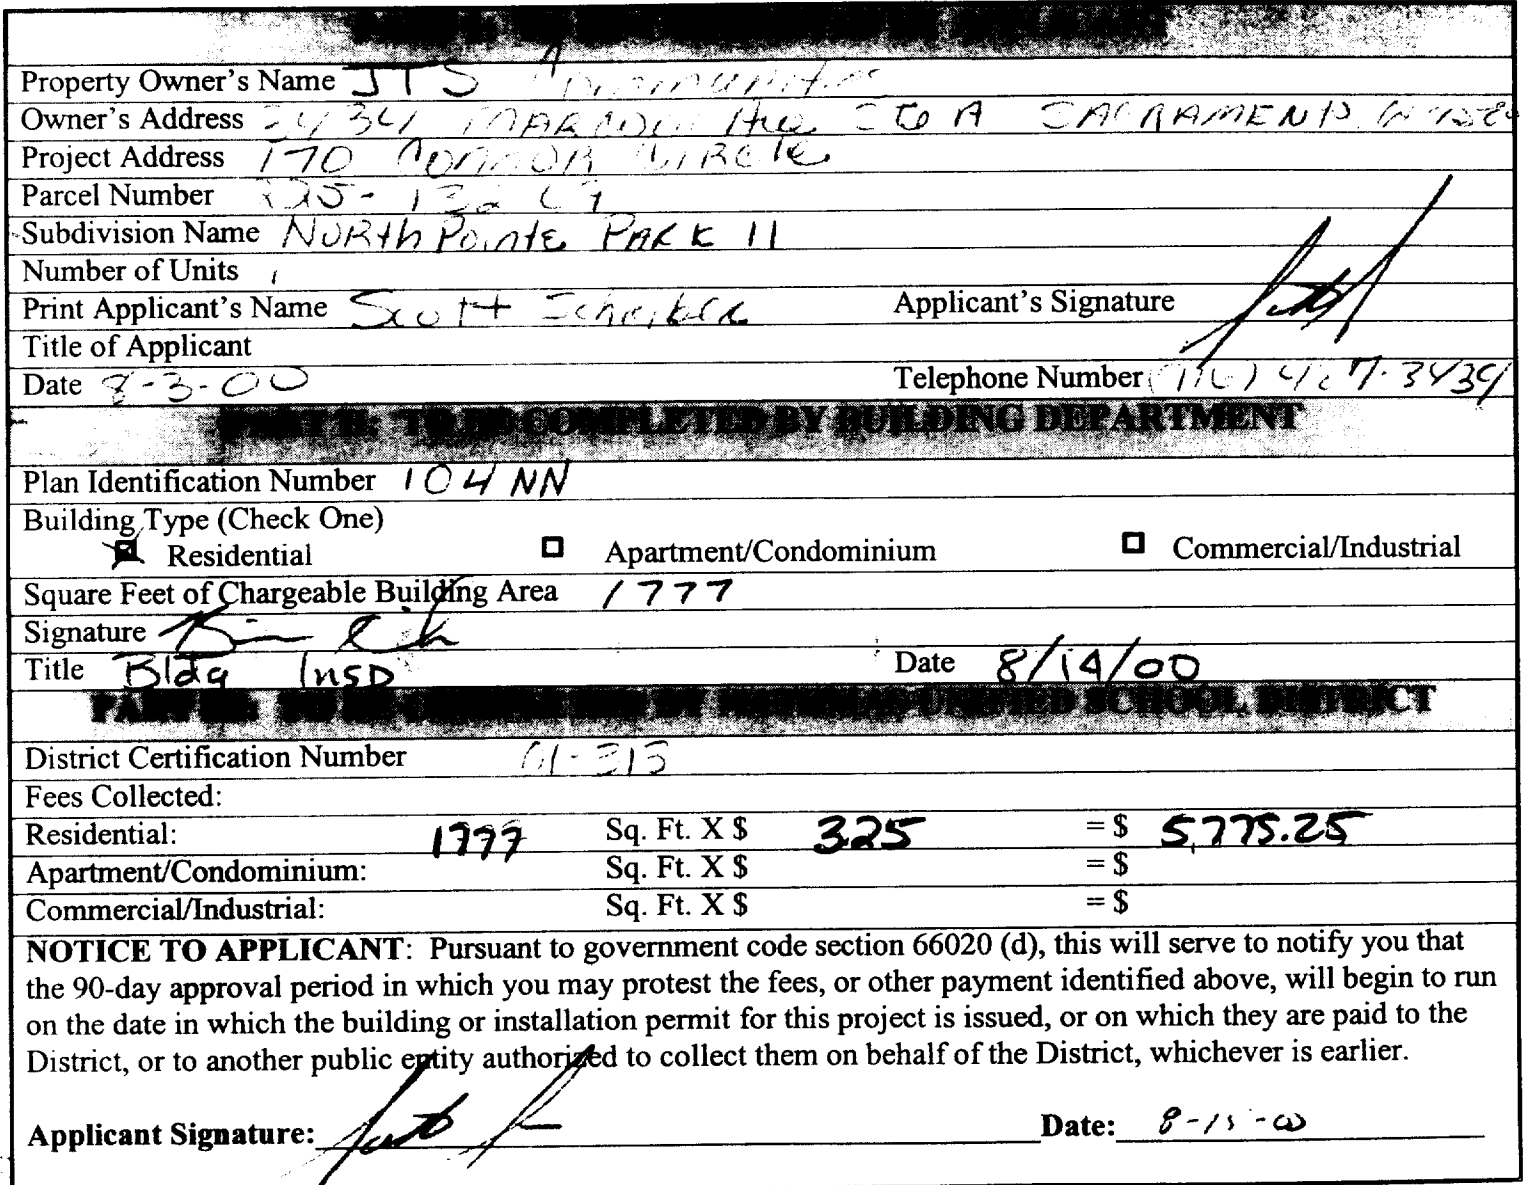 Property Owner's Name JTS Communities
Owner's Address 3434 Marconi Ave Ste A SACRAMENTO
Project Address 170 CONNOR CIRCLE
Parcel Number
Subdivision Name NORth Pointe PARK 11
Number of Units 1
Print Applicant's Name Scott Applicant's Signature
Title of Applicant
Date 8-3-00 Telephone Number (916) 3434
PART II: TO BE COMPLETED BY BUILDING DEPARTMENT
Plan Identification Number 104 NN
Building Type (Check One)
Residential Apartment/Condominium Commercial/Industrial
Square Feet of Chargeable Building Area 1777
Signature
Title Bldg Insp Date 8/14/00
PART III: TO BE COMPLETED BY NATOMAS UNIFIED SCHOOL DISTRICT
District Certification Number 01-313
Fees Collected:
Residential: 1777 Sq. Ft. X $ 3.25 = $ 5,775.25
Apartment/Condominium: Sq. Ft. X $ = $
Commercial/Industrial: Sq. Ft. X $ = $
NOTICE TO APPLICANT: Pursuant to government code section 66020 (d), this will serve to notify you that
the 90-day approval period in which you may protest the fees, or other payment identified above, will begin to run
on the date in which the building or installation permit for this project is issued, or on which they are paid to the
District, or to another public entity authorized to collect them on behalf of the District, whichever is earlier.
Applicant Signature: Date: 8-15-00